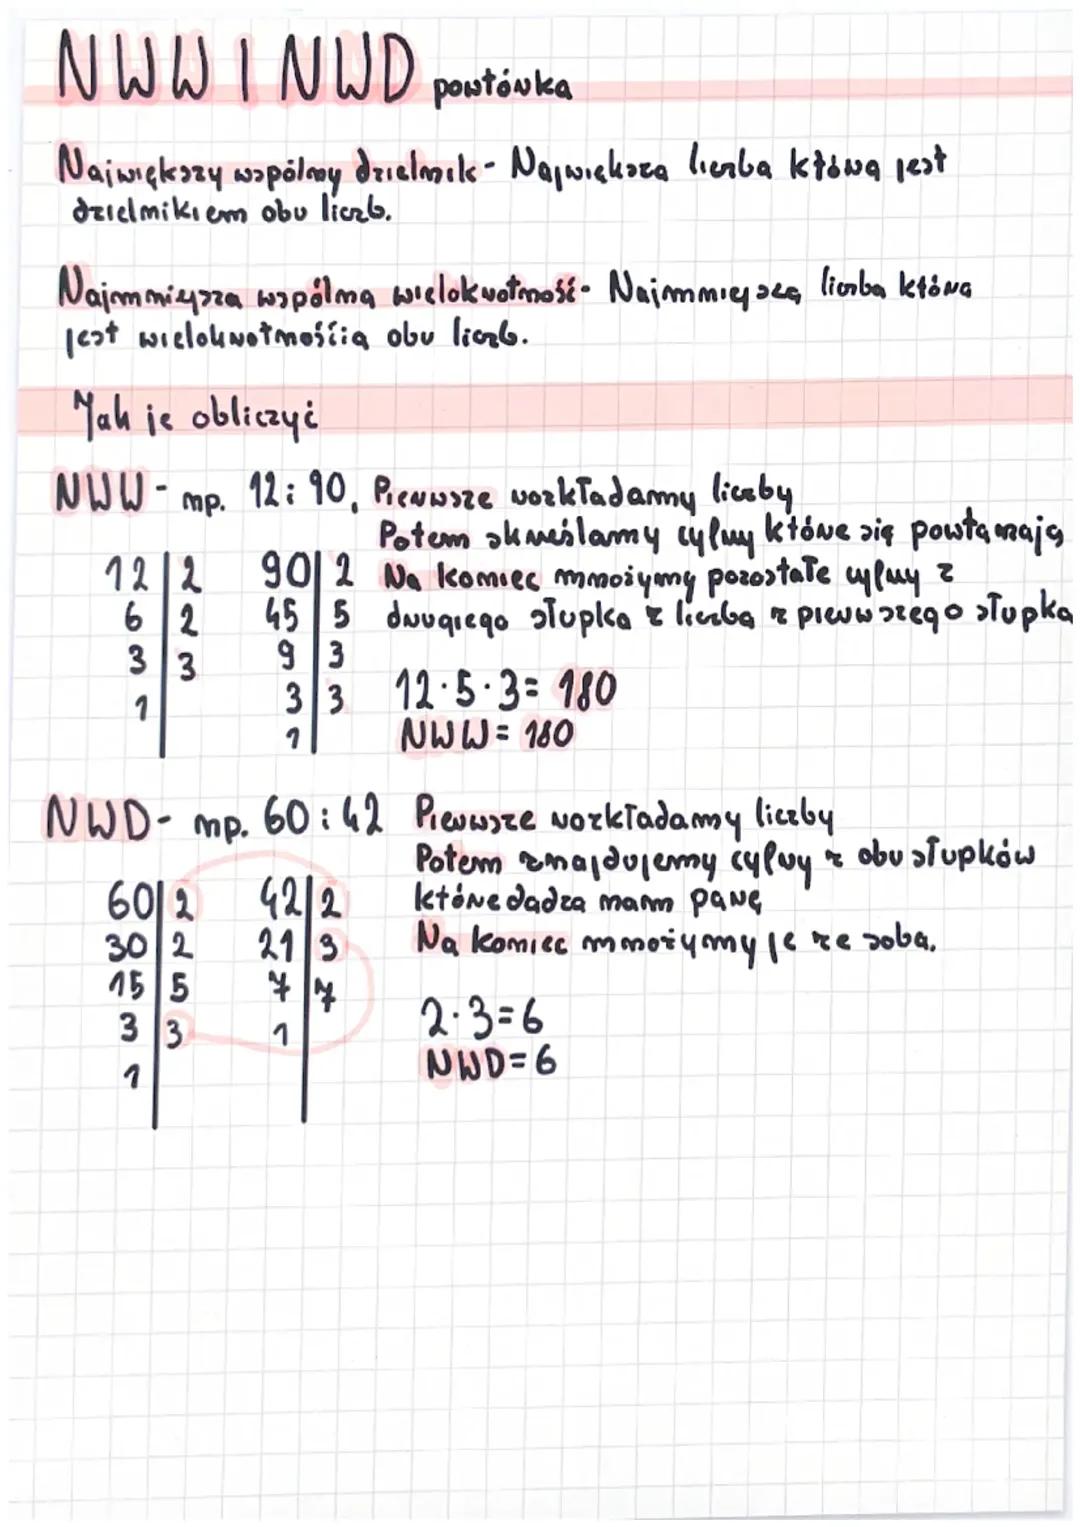 NWW I NWD powtórka
Największy wspólny dzielnik - Największa liczba którą jest
dzielnikiem obu liczb.
Najmniejsza wspólna wielokrotność - Najmniejsza liczba która
jest wielokrotnością obu liczb.
Jak je obliczyć
NWW - np. 12 i 90, Pierwsze rozkładamy liczby
Potem skreślamy cyfry które się powtarzają
Na koniec mnożymy pozostałe cyfry z
drugiego słupka z liczba z pierwszego słupka
12 | 2 90 | 2
6 | 2 45 | 5
3 | 3 9 | 3
1 3 | 3
1
12·5·3= 180
NWW= 180
NWD - np. 60 i 42 Pierwsze rozkładamy liczby
Potem znajdujemy cyfry z obu słupków
które dadza nam parę
Na koniec mnożymy je ze soba.
60 | 2 42 | 2
30 | 2 21 | 3
15 | 5 7 | 7
3 | 3 1
1
2·3=6
NWD=6